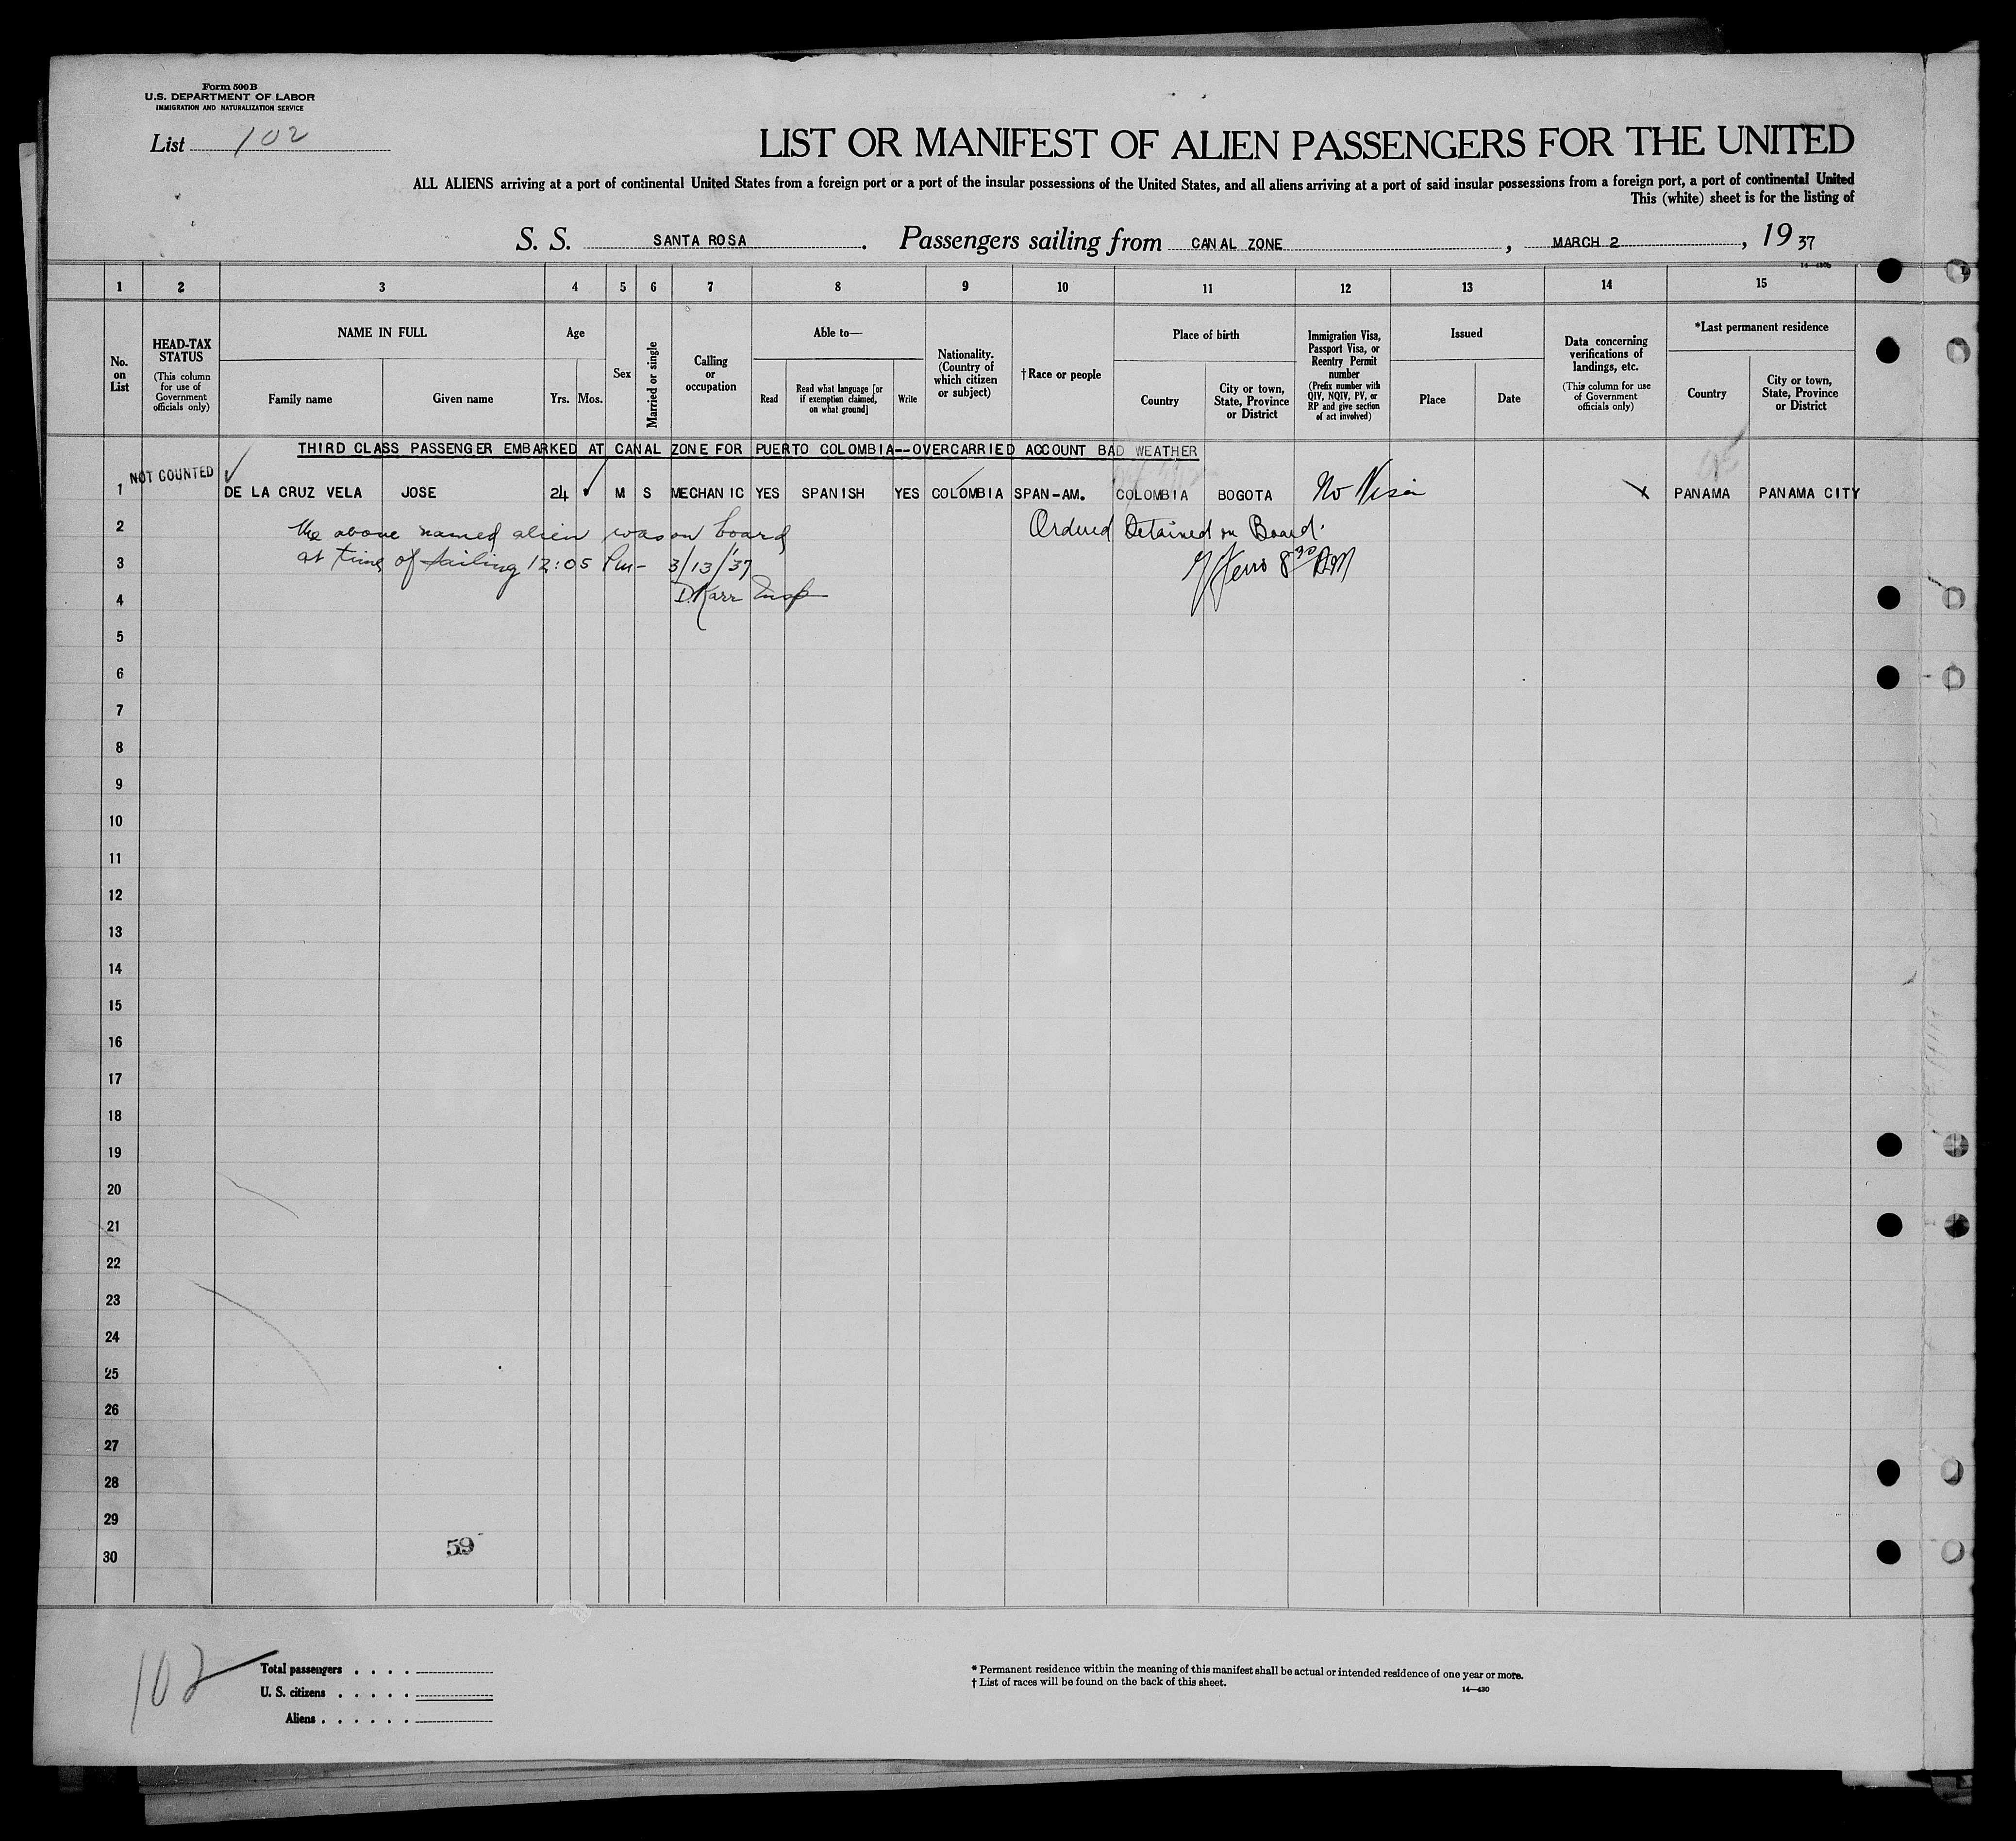 Form 500B
U.S. DEPARTMENT OF LABOR
IMMIGRATION AND NATURALIZATION SERVICE
List 102
LIST OR MANIFEST OF ALIEN PASSENGERS FOR THE UNITED
ALL ALIENS arriving at a port of continental United States from a foreign port or a port of the insular possessions of the United States, and all aliens arriving at a port of said insular possessions from a foreign port, a port of continental United
This (white) sheet is for the listing of
S. S. SANTA ROSA. Passengers sailing from CANAL ZONE, MARCH 2, 1937
1 2 3 4 5 6 7 8 9 10 11 12 13 14 15
No. on List
HEAD-TAX STATUS
(This column for use of Government officials only)
NAME IN FULL
Family name
Given name
Age
Yrs.
Mos.
Sex
Married or single
Calling or occupation
Able to—
Read
Read what language [or if exemption claimed, on what ground]
Write
Nationality. (Country of which citizen or subject)
†Race or people
Place of birth
Country
City or town, State, Province or District
Immigration Visa, Passport Visa, or Reentry Permit number
(Prefix number with QIV, NQIV, PV, or RP and give section of act involved)
Issued
Place
Date
Data concerning verifications of landings, etc.
(This column for use of Government officials only)
*Last permanent residence
Country
City or town, State, Province or District
THIRD CLASS PASSENGER EMBARKED AT CANAL ZONE FOR PUERTO COLOMBIA--OVERCARRIED ACCOUNT BAD WEATHER
NOT COUNTED
1 DE LA CRUZ VELA JOSE 24 M S MECHANIC YES SPANISH YES COLOMBIA SPAN-AM. COLOMBIA BOGOTA No Visa X PANAMA PANAMA CITY
2 The above named alien was on board Ordered Detained on Board.
3 at time of sailing 12:05 Pm- 3/13/37 8³⁰ AM
4 D. Karr Insp
5
6
7
8
9
10
11
12
13
14
15
16
17
18
19
20
21
22
23
24
25
26
27
28
29
30
59
102
Total passengers . . . .
U. S. citizens . . . . .
Aliens . . . . . .
* Permanent residence within the meaning of this manifest shall be actual or intended residence of one year or more.
† List of races will be found on the back of this sheet.
14—430